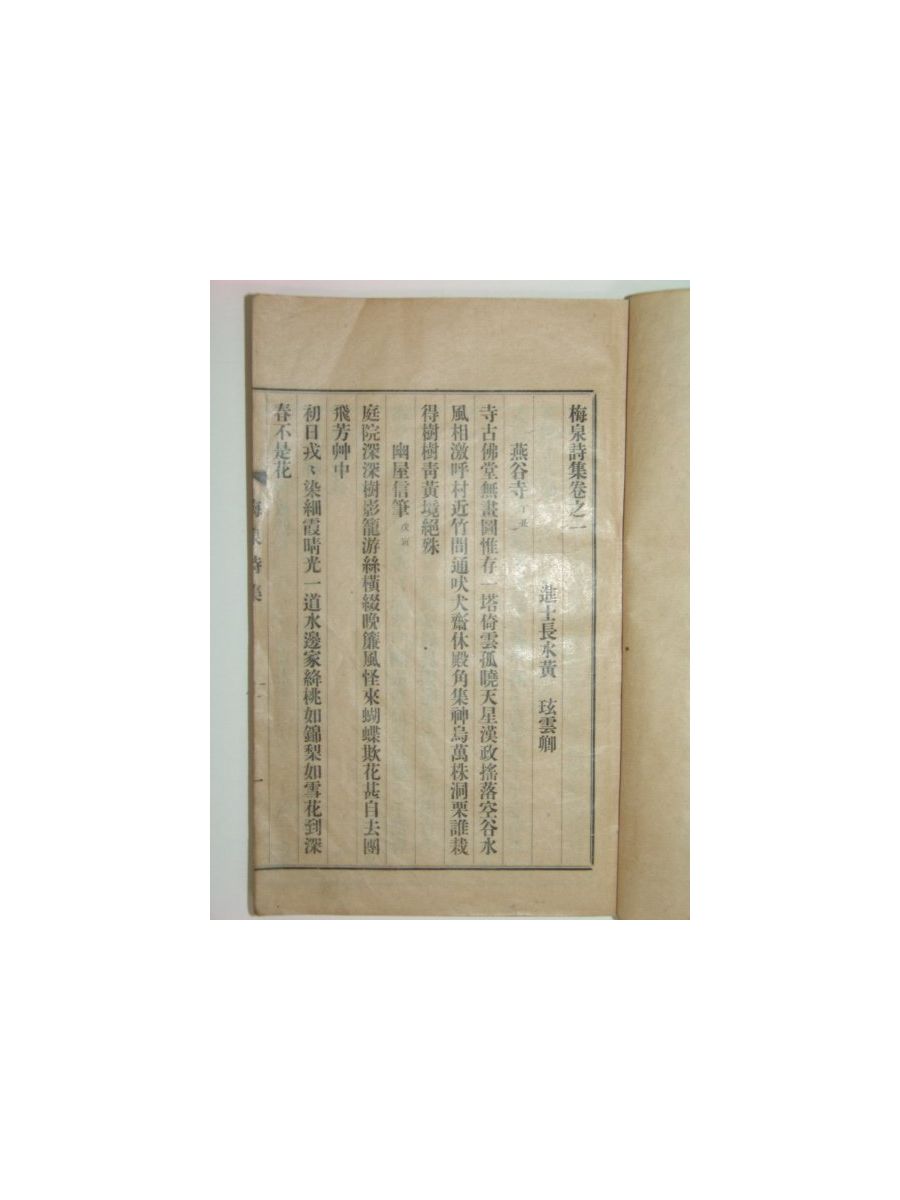 梅泉詩集卷之一
進士長水黃 玹雲卿
燕谷寺 丁丑
寺古佛堂無畫圖惟存一塔倚雲孤曉天星漢政搖落空谷水
風相激呼村近竹間通吠犬齋休殿角集神烏萬株洞栗誰栽
得樹樹靑黃境絕殊
幽屋信筆 戊寅
庭院深深樹影籠游絲橫綴晩簾風怪來蝴蝶欺花甚自去團
飛芳艸中
初日戎〻染細霞晴光一道水邊家絳桃如錦梨如雪花到深
春不是花
梅泉詩集 一